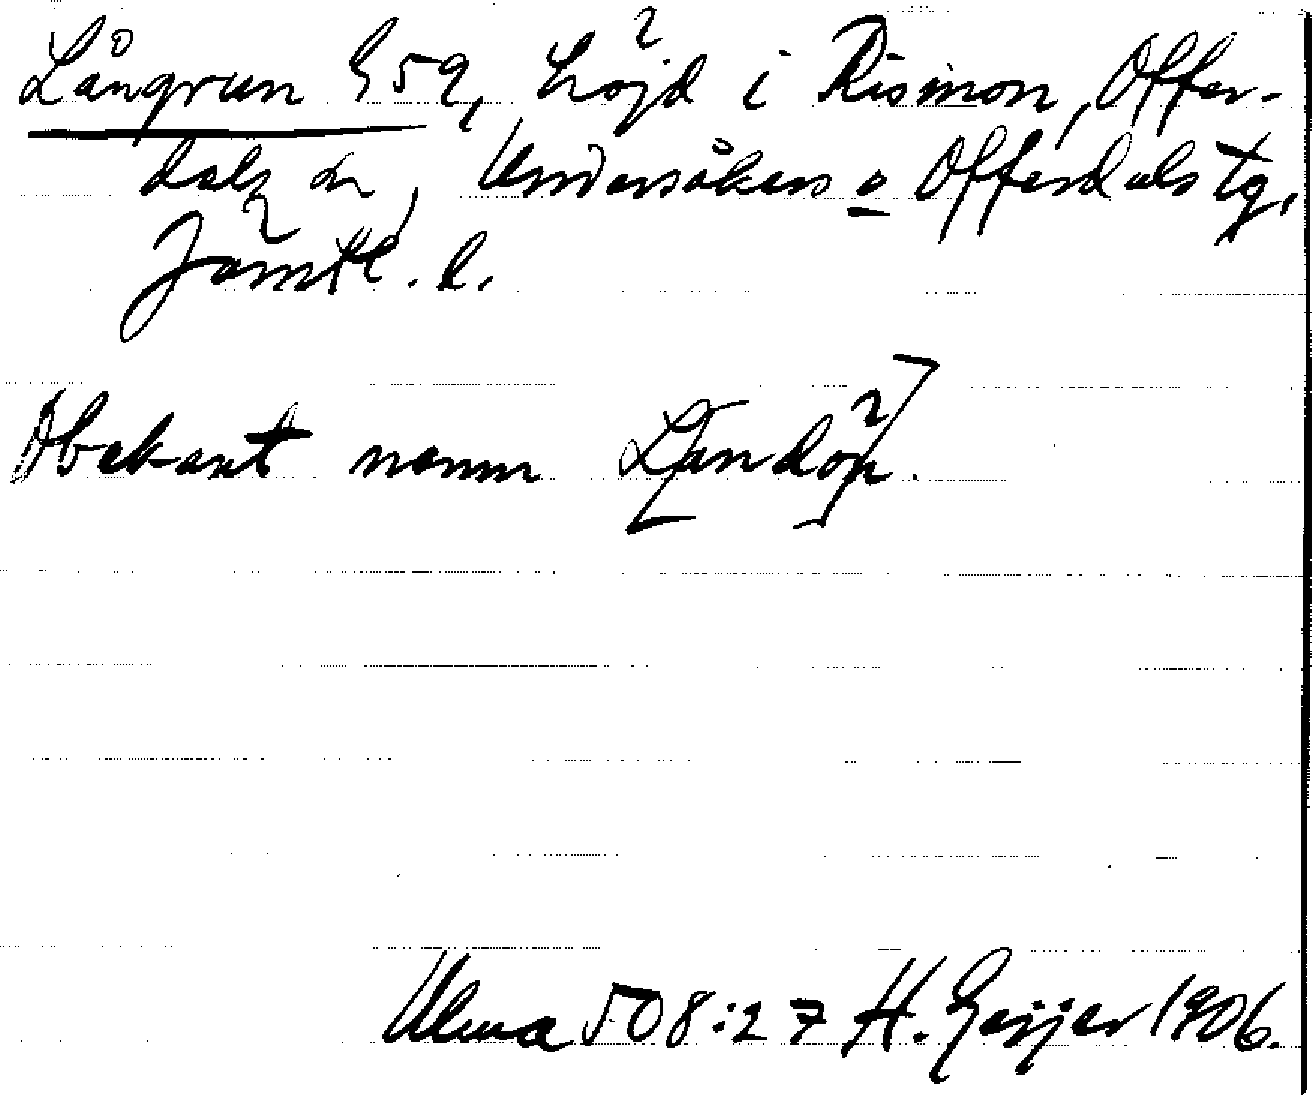 Långrun G59, höjd i Rismon, Offer-
dals sn, Undersåkers o Offerdals tg,
Jämtl. l.
Obekant namn [Landön].
Ulma 508:27 H. Geijer 1906.